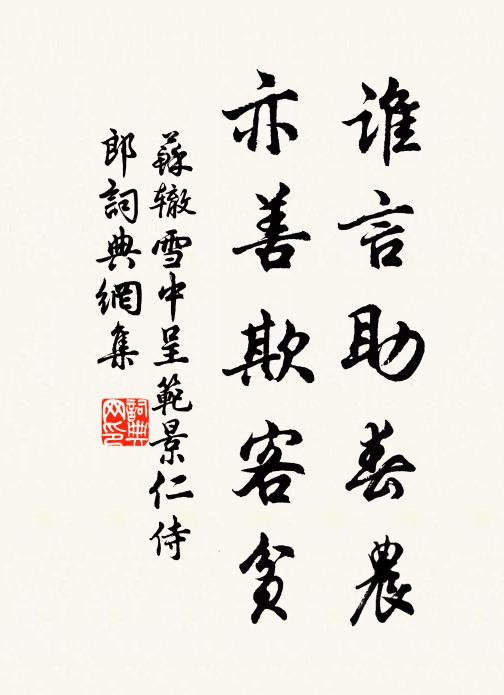 谁言助春農
亦善欺客貧
蘇辙雪中呈範景仁侍
郎詞典網集
詞典
网印